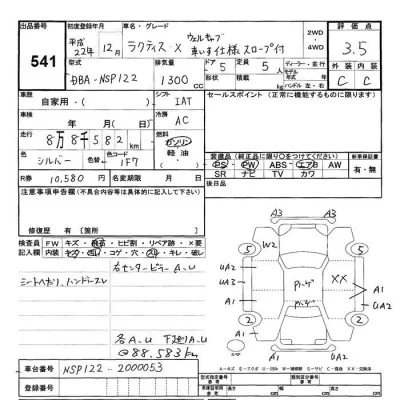 出品番号 初度登録年月 車名・グレード 2WD 4WD 評価点
541
平成22年12月 ラクティス・X ウェルキャブ 車いす仕様 スロープ付 3.5
型式 排気量 ドア 定員 ディーラー・並行 外装 内装
DBA-NSP122 1300cc 5 5人 C C
形状 積載 kg モデル 年 ハンドル 左・右
車歴 自家用・( ) シフト IAT
セールスポイント (正常に機能するものに限ります)
車検 年 月(日) 冷房 AC
走行 8万8千582km 燃料 ガソリン 軽油
色 シルバー 色コード 1F7
装備品(純正品に限り○をつけてください) 新車保証書
PS・PW・ABS・エアB AW 有・無
SR ナビ TV カワ
R券 10,580円 名義変更期限 月 日 後日品
注意事項申告欄(不具合内容等は具体的に記入して下さい)
修復歴 有( )箇所
検査員記入欄 FW キズ・飛石・ヒビ割・リペア跡・×要
内装 キズ・凹・コゲ・穴・キレ・破レ
右センターピラーA.U
シートヘタリ、ハンドースレ
各A.U 下廻りA.U
@88.583km
車台番号 NSP122-2000053
登録番号
型式指定番号 類別区分番号
長さ cm 幅 cm 高さ cm
A3 A3
5 W2 5
UA2 UA3 A1 XX A1 UA2
2 2
A1 A1 UA2